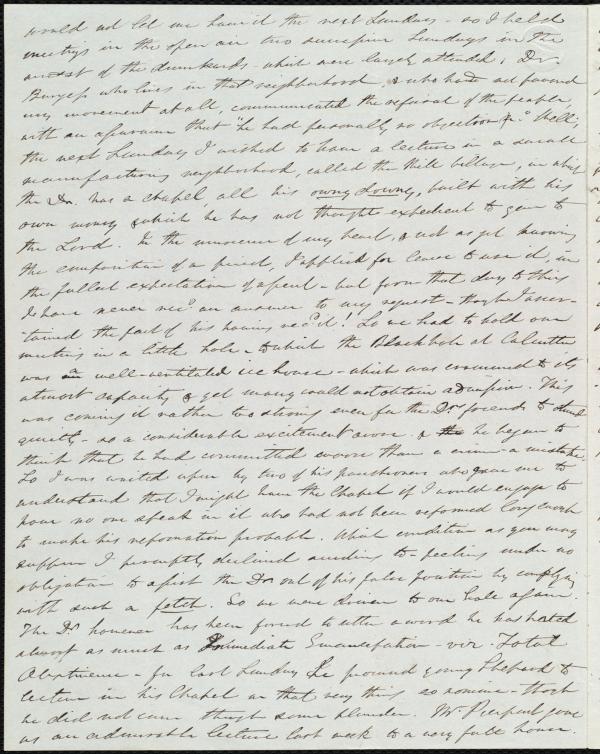 would not let me have it the next Sunday - so I held
meetings in the open air two successive Sundays in the
midst of the drunkards - which were largely attended. Dr
Burgess who lives in that neighborhood, & who had not favored
my movement at all, communicated the refusal of the people,
with an assurance that "he had personally no objection &c." Well;
the next Sunday I wished to have a lecture in a small
manufacturing neighborhood, called the Mill Village, in which
the Dr. has a chapel all his owny downy, built with his
own money & which he has not thought expedient to give to
the Lord. In the innocence of my heart, & not as yet knowing
the composition of a priest, I applied for leave to use it, in
the fullest expectation of assent - but from that day to this
I have never rec'd an answer to my request - tho' he I ascer-
tained the fact of his having rec'd it! So we had to hold our
meeting in a little hole - to which the Blackhole at Calcutta
was a well-ventilated ice house - which was crammed to its
utmost capacity & yet many could not obtain admission. This
was coming it rather too strong even for the Drs friends to stand
quietly - so a considerable excitement arose & he began to
think that he had committed worse than a crime - a mistake.
So I was waited upon by two of his parishioners who gave me to
understand that I might have the Chapel if I would engage to
have no one speak in it who had not been reformed long enough
to make his reformation probable. Which condition as you may
suppose I promptly declined acceding to - feeling under no
obligation to assist the Dr out of his false position by complying
with such a fetch. So we were driven to our hole again.
The Dr however has been forced to utter a word he has hated
almost as much as Immediate Emancipation - viz. Total
Abstinence - for last Sunday he procured young Shepard to
lecture in his Chapel on that very thing so nomine - tho't
he did not come through some blunder. Mr Pierpont gave
us an admirable lecture last week to a very full house.